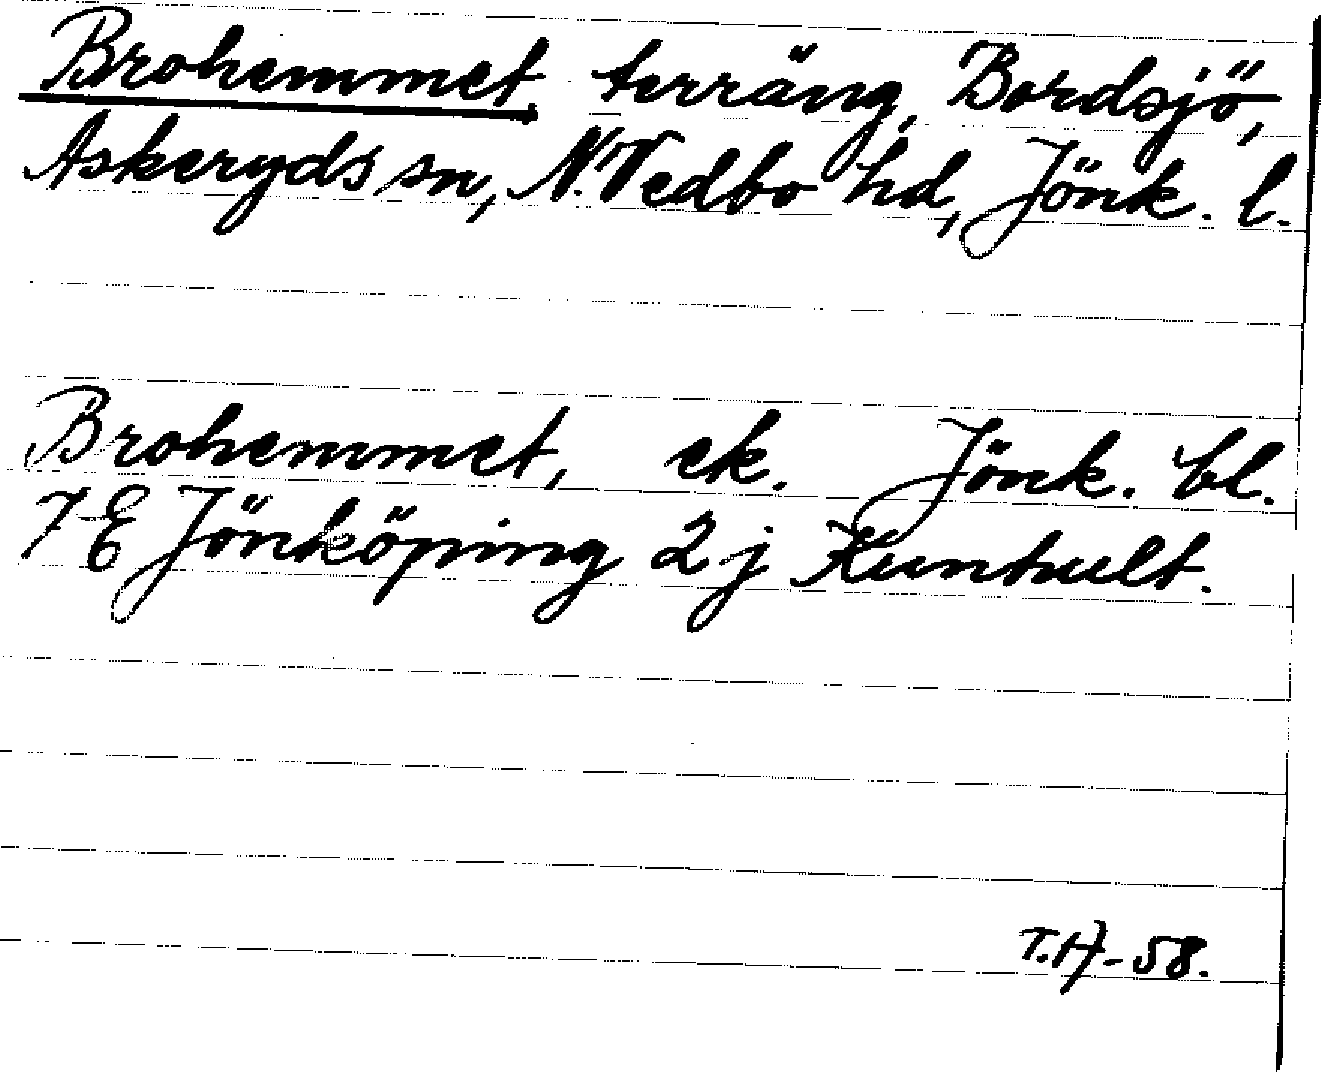 Brohemmet, terräng, Bordsjö,
Askeryds sn, N. Vedbo hd, Jönk. l.
Brohemmet, ek. Jönk. bl.
7 E Jönköping 2 j Kunhult.
T.17-58.